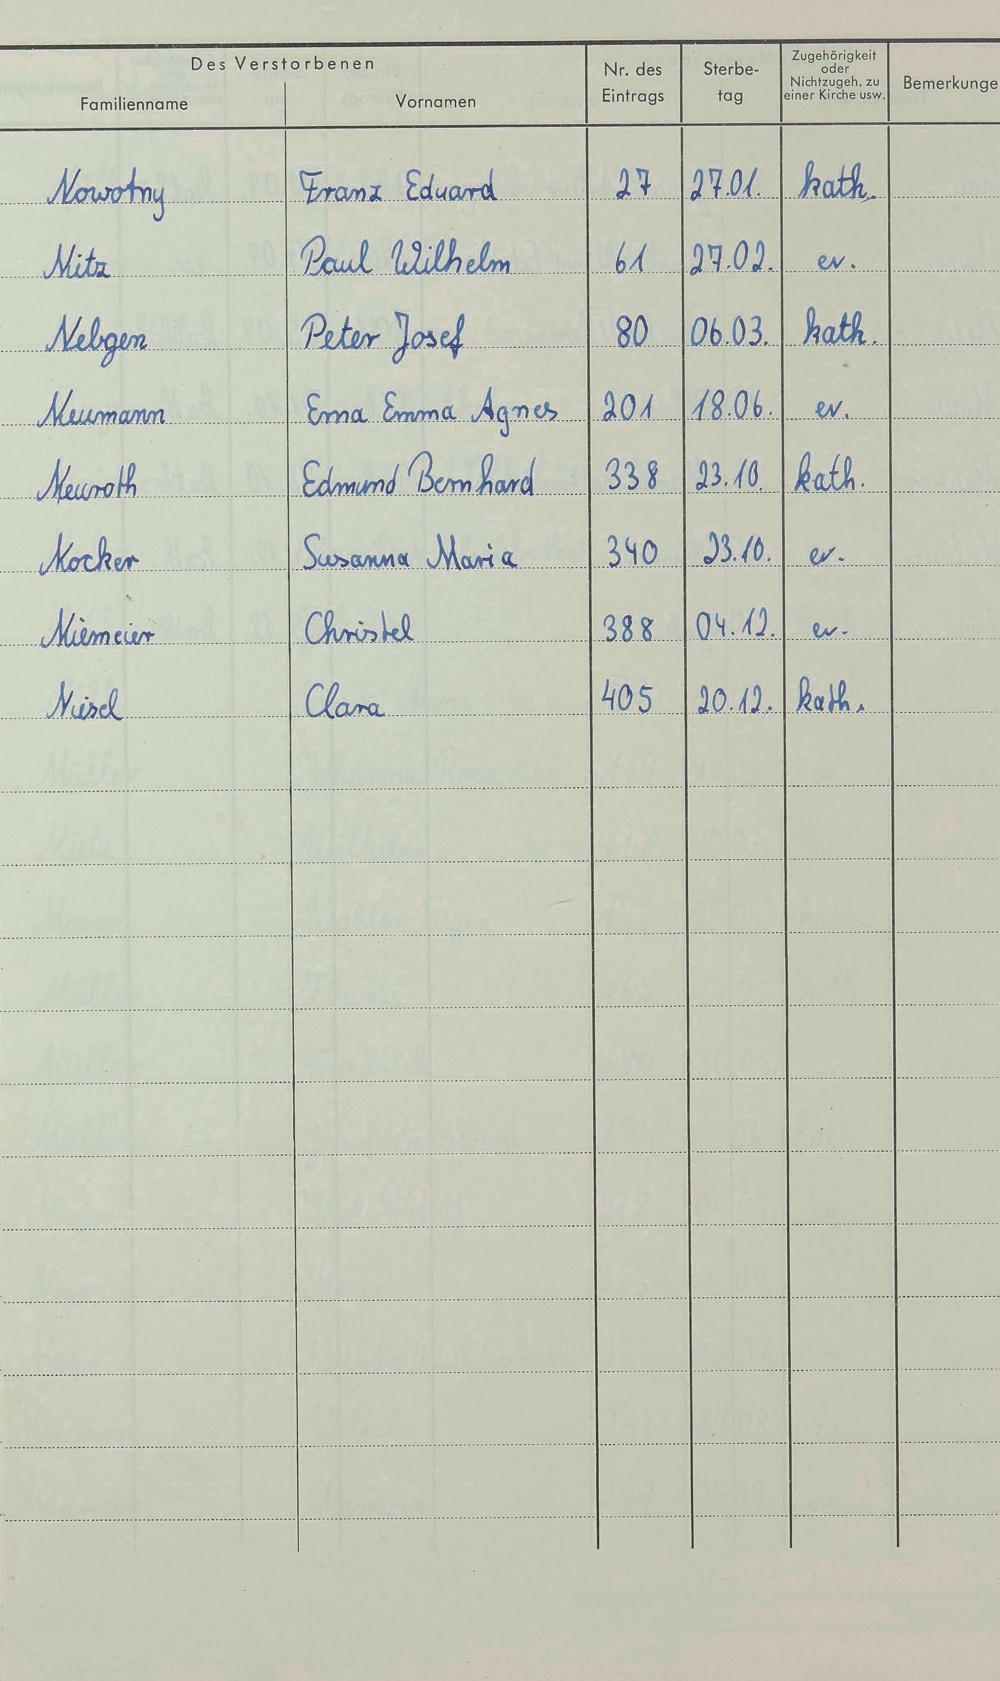 Des Verstorbenen
Familienname Vornamen Nr. des Eintrags Sterbe-tag Zugehörigkeit oder Nichtzugeh. zu einer Kirche usw. Bemerkunge
Nowotny Franz Eduard 27 27.01. kath.
Nitz Paul Wilhelm 61 27.02. ev.
Nebgen Peter Josef 80 06.03. kath.
Neumann Erna Emma Agnes 201 18.06. ev.
Neuroth Edmund Bernhard 338 23.10. kath.
Nocker Susanna Maria 340 23.10. ev.
Niemeier Christel 388 04.12. ev.
Niesel Clara 405 20.12. kath.